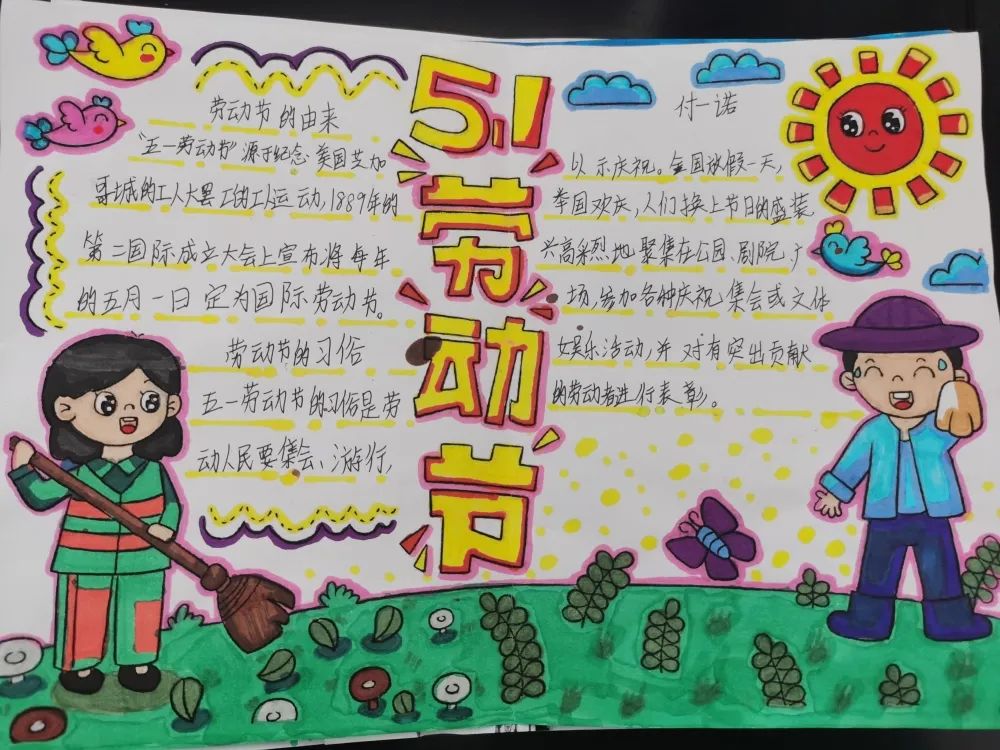 劳动节的由来
"五一劳动节"源于纪念美国芝加
哥城的工人大罢工的工人运动,1889年的
第二国际成立大会上宣布将每年
的五月一日定为国际劳动节。
劳动节的习俗
五一劳动节的习俗是劳
动人民要集会、游行,
5.1
劳
动
节
付一诺
以示庆祝。全国放假一天,
举国欢庆,人们换上节日的盛装,
兴高采烈地聚集在公园、剧院、广
场,参加各种庆祝集会或文体
娱乐活动,并对有突出贡献
的劳动者进行表彰。